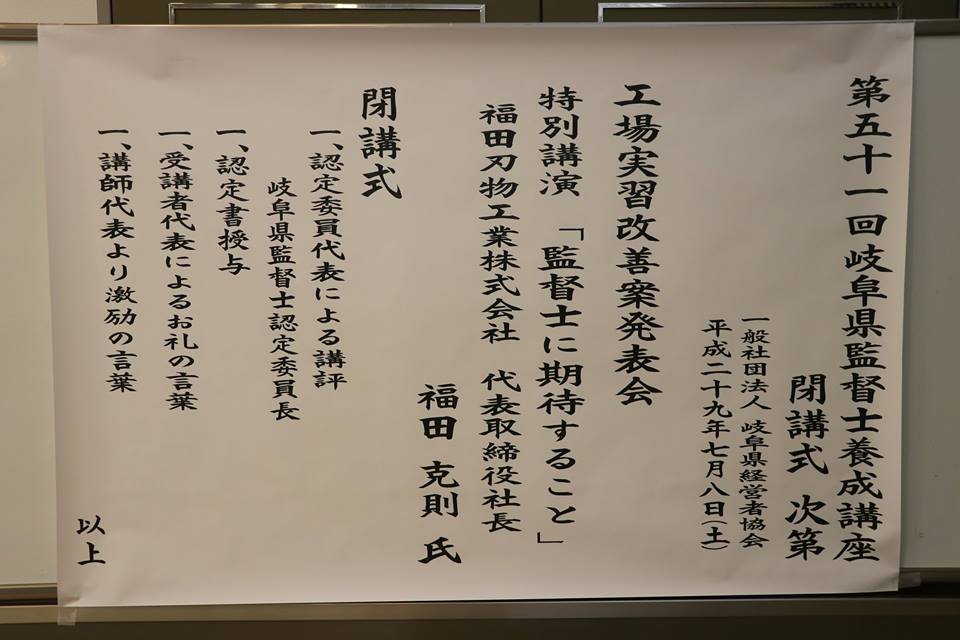 第五十一回岐阜県監督士養成講座
閉講式 次第
一般社団法人 岐阜県経営者協会
平成二十九年七月八日(土)
工場実習改善案発表会
特別講演 「監督士に期待すること」
福田刃物工業株式会社 代表取締役社長
福田 克則 氏
閉講式
一、認定委員代表による講評
岐阜県監督士認定委員長
一、認定書授与
一、受講者代表によるお礼の言葉
一、講師代表より激励の言葉
以上